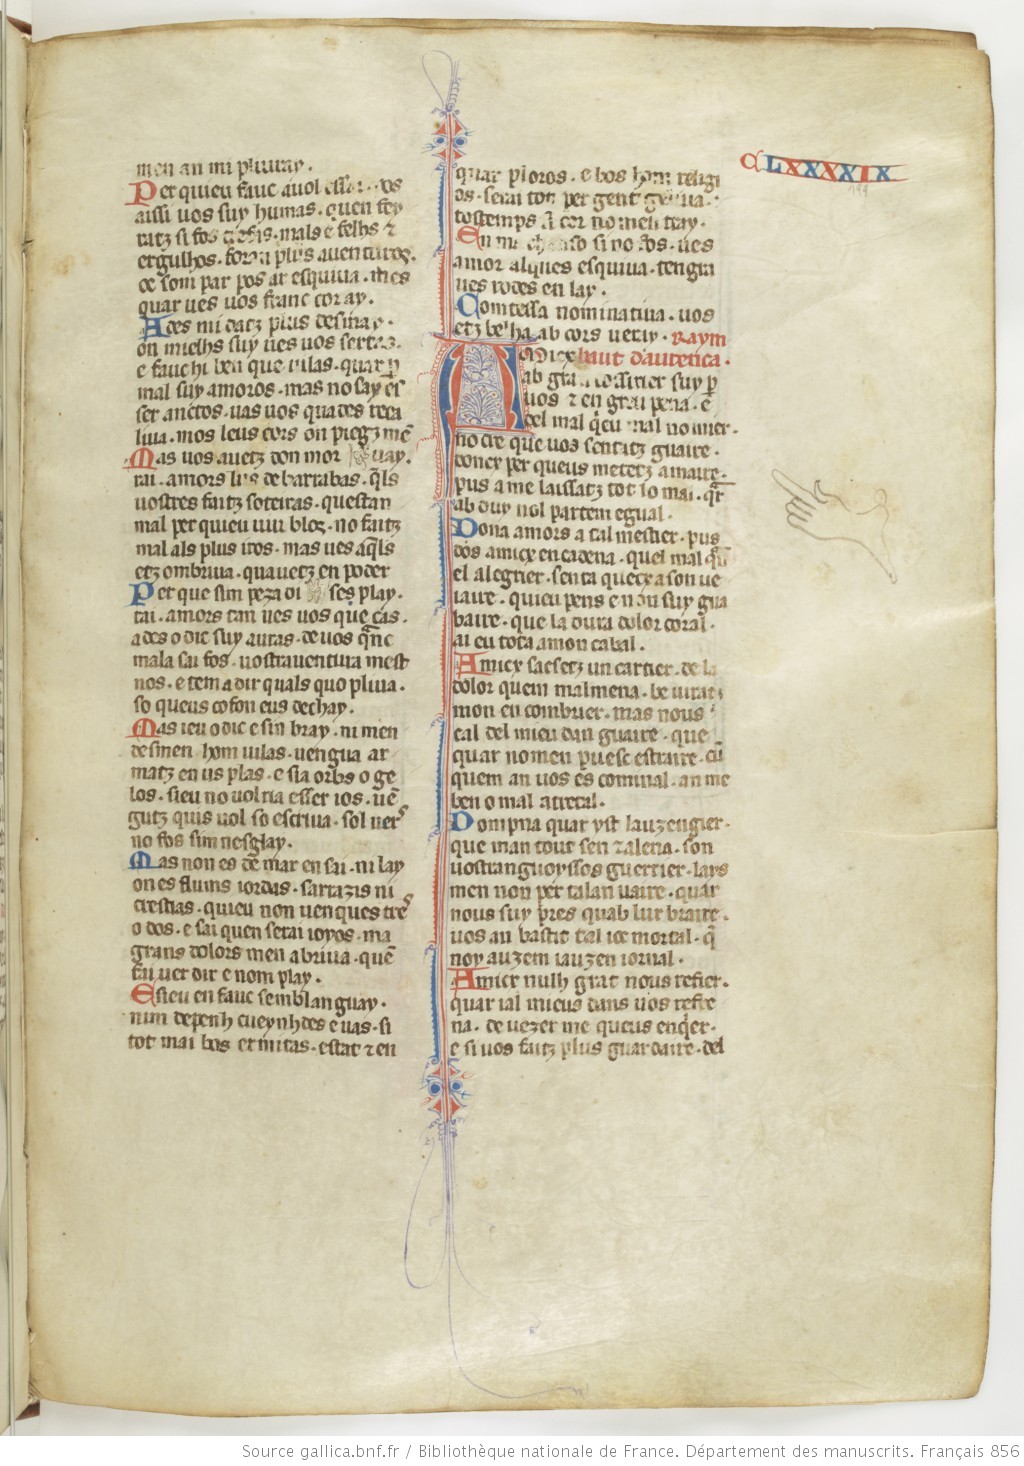 men an mi pliuray.
Per quieu fauc auol
aissi uos suy humas. quen fey
ratz si fos mals e felhs ⁊
ergulhos. fora plus auenturos.
de som par pos ar esquiua. mes
quar ues uos franc cor ay.
Ades mi datz plus desmay.
on mielhs suy ues uos sertas.
e fauc hi ben que uilas. quar ꝑ
mal suy amoros. mas no say es
ser anctos. uas uos qua des reca
liua. mos leus cors on piegz mē
Mas uos auetz don mor uay.
rai. amors de barrabas. q̄ls
uostres faitz soteiras. questan
mal per quieu uiu blos. no faitz
mal als plus iros. mas ues aq̄ls
etz ombriua. quauetz en poder
Per que sim peza oi ses play.
rai. amors tan ues uos que cas.
ades o dic suy auras. de uos qᷓnc
mala sai fos. uostrauentura mest
nos. e tem a dir quals quo pliua.
so queus cofon eus dechay.
Mas ieu o dic e sin bray. ni men
desmen hom uilas. uengua ar
matz en us plas. e sia orbs o ge
los. sieu no uolria esser ios. uē
gutz quis uol so escriua. sol uers
no fos sim nesglay.
Mas non es de mar en sai. ni lay
on es fluins iordas. sartazis ni
crestias. quieu non uenques tres
o dos. e sai quen serai ioyos. ma
grans dolors men abriua. quē
fai uer dir e nom play.
E sieu en fauc semblan guay.
nim depenh cueynhdes e uas. si
tot mai bos ermitas. estat ⁊ en
quar ploros. e bos hom religi
os. serai tot per gent
tostemps cor no men tray.
En si no fos. ues
amor alques esquiua. tengra
ues rodes en lay.
Comtessa nominatiua. uos
etz belha ab cors ueray. Raym
Amicx baut daurenca.
ab gran cossirier suy ꝑ
uos ⁊ en greu pena. e
del mal q̄eu mal no uuer.
no cre que uos sentatz guaire.
doncx per queus metetz amaire.
pus a me laissatz tot lo mai. qr̄
ab duy nol partem egual.
Dona amors a tal mestier. pus
dos amicx encadena. quel mal qu
el alegrier. senta quecx a son ue
iaire. quieu pens e non suy gua
baire. que la dura dolor coral.
ai eu tota a mon cabal.
Amicx sacsetz un cartier. de la
dolor quem malmena. be uiratz
mon en combrier. mas nous
cal del mieu dan guaire. que
quar no men puesc estraire. cū
quem an uos es cominal. an me
ben o mal atretal.
Dompna quar yst lauzengier.
que man tout sen ⁊ alena. son
uostranguoyssos guerrier. lays
men non per talan uaire. quar
nous suy pres quab lur braire.
uos an bastit tal ioc mortal. q̄
noy auzem iauzen iornal.
Amicx nulh grat nous refier.
quar ial mieus dans uos refre
na. de uezer me queus enq̄er.
e si uos faitz plus guardaire. del
CLXXXXIX
199
Source gallica.bnf.fr / Bibliothèque nationale de France. Département des manuscrits. Français 856